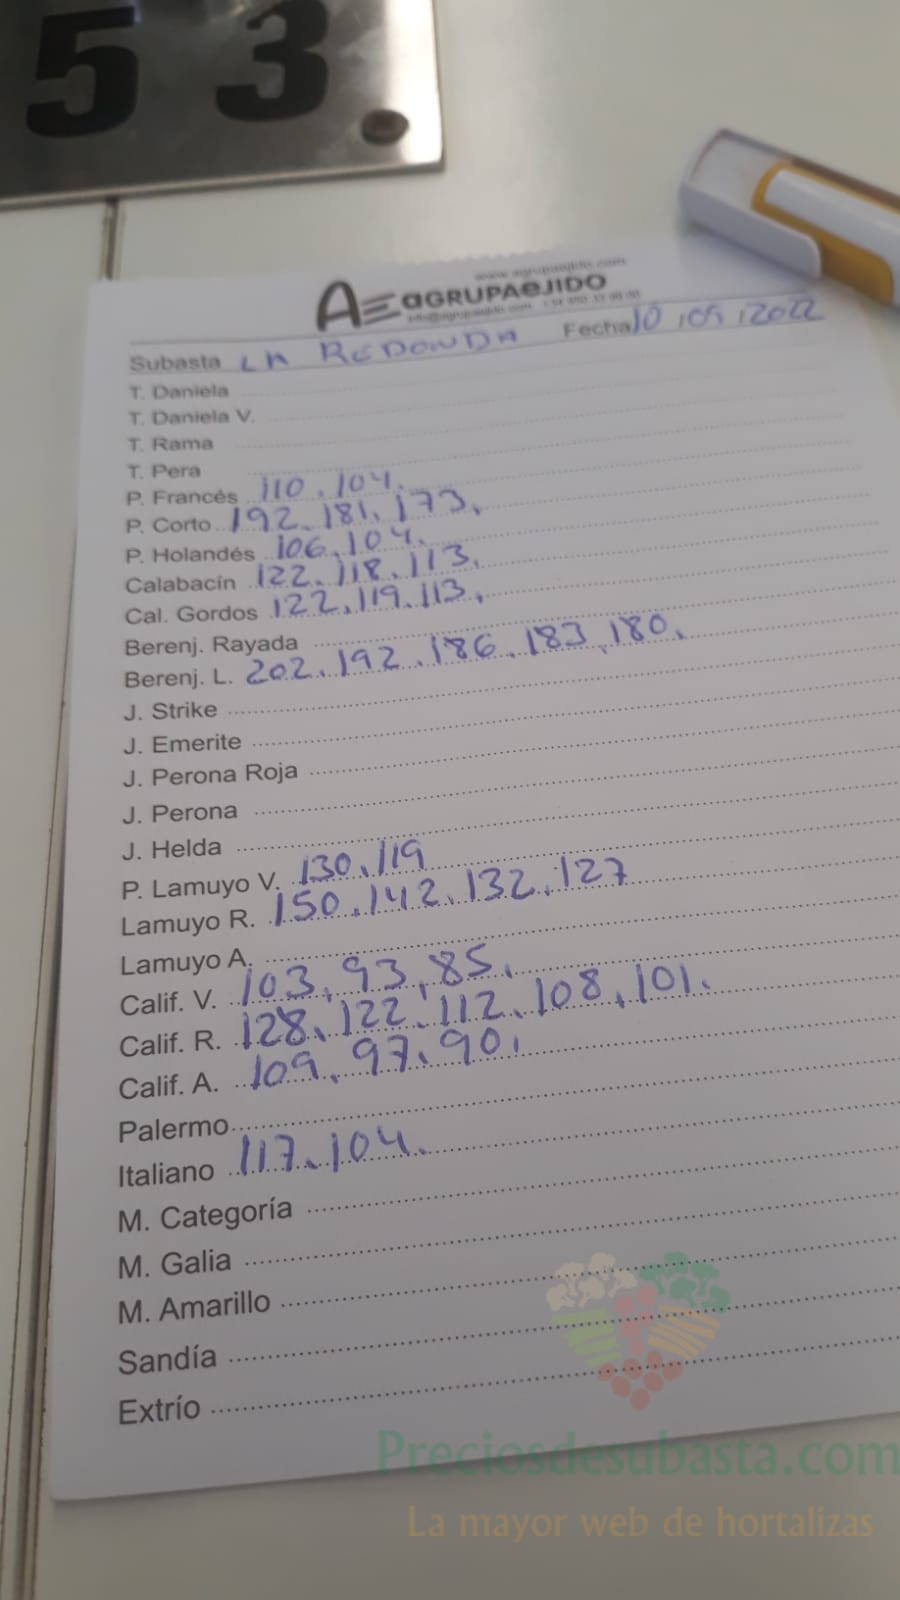 53
www.agrupaejido.com
AE aGRUPAeJIDO
Subasta LA REDONDA Fecha 10/09/2022
T. Daniela
T. Daniela V.
T. Rama
T. Pera
P. Francés 110, 104.
P. Corto 192, 181, 173,
P. Holandés 106, 104.
Calabacín 122, 118, 113,
Cal. Gordos 122, 119, 113,
Berenj. Rayada
Berenj. L. 202, 192, 186, 183, 180,
J. Strike
J. Emerite
J. Perona Roja
J. Perona
J. Helda
P. Lamuyo V. 130, 119
Lamuyo R. 150, 142, 132, 127
Lamuyo A.
Calif. V. 103, 93, 85,
Calif. R. 128, 122, 112, 108, 101.
Calif. A. 109, 97, 90,
Palermo
Italiano 117, 104.
M. Categoría
M. Galia
M. Amarillo
Sandía
Extrío
Preciosdesubasta.com
La mayor web de hortalizas